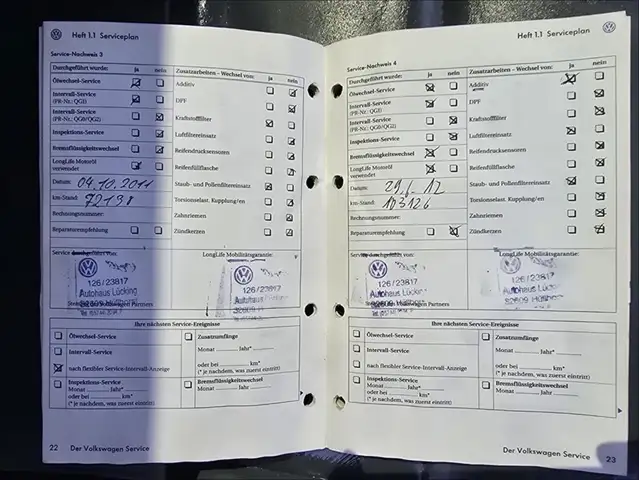 Heft 1.1 Serviceplan
Service-Nachweis 3
Durchgeführt wurde: ja nein
Ölwechsel-Service
Intervall-Service
(PR-Nr.: QG1)
Intervall-Service
(PR-Nr.: QG0/QG2)
Inspektions-Service
Bremsflüssigkeitswechsel
LongLife Motoröl
verwendet
Datum: 04.10.2011
km-Stand: 72198
Rechnungsnummer:
Reparaturempfehlung
Zusatzarbeiten - Wechsel von: ja nein
Additiv
DPF
Kraftstofffilter
Luftfiltereinsatz
Reifendrucksensoren
Reifenfüllflasche
Staub- und Pollenfiltereinsatz
Torsionselast. Kupplung/en
Zahnriemen
Zündkerzen
Service durchgeführt von:
126/23817
Autohaus Lücking
LongLife Mobilitätsgarantie:
126/23817
Autohaus Lücking
Ihre nächsten Service-Ereignisse
Ölwechsel-Service
Intervall-Service
nach flexibler Service-Intervall-Anzeige
Inspektions-Service
Monat Jahr*
oder bei km*
(* je nachdem, was zuerst eintritt)
Zusatzumfänge
Monat Jahr*
oder bei km*
(* je nachdem, was zuerst eintritt)
Bremsflüssigkeitswechsel
Monat Jahr
22 Der Volkswagen Service
Heft 1.1 Serviceplan
Service-Nachweis 4
Durchgeführt wurde: ja nein
Ölwechsel-Service
Intervall-Service
(PR-Nr.: QG1)
Intervall-Service
(PR-Nr.: QG0/QG2)
Inspektions-Service
Bremsflüssigkeitswechsel
LongLife Motoröl
verwendet
Datum: 29.6.12
km-Stand: 103126
Rechnungsnummer:
Reparaturempfehlung
Zusatzarbeiten - Wechsel von: ja nein
Additiv
DPF
Kraftstofffilter
Luftfiltereinsatz
Reifendrucksensoren
Reifenfüllflasche
Staub- und Pollenfiltereinsatz
Torsionselast. Kupplung/en
Zahnriemen
Zündkerzen
Service durchgeführt von:
126/23817
Autohaus Lücking
LongLife Mobilitätsgarantie:
126/23817
Autohaus Lücking
Ihre nächsten Service-Ereignisse
Ölwechsel-Service
Intervall-Service
nach flexibler Service-Intervall-Anzeige
Inspektions-Service
Monat Jahr*
oder bei km*
(* je nachdem, was zuerst eintritt)
Zusatzumfänge
Monat Jahr*
oder bei km*
(* je nachdem, was zuerst eintritt)
Bremsflüssigkeitswechsel
Monat Jahr
Der Volkswagen Service 23